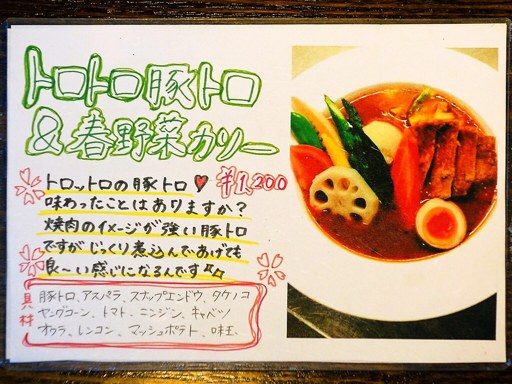 トロトロ豚トロ
&春野菜カリー
トロットロの豚トロ♥
¥1,200
味わったことはありますか?
焼肉のイメージが強い豚トロ
ですがじっくり煮込んであげても
良〜い感じになるんです♪♪
具材
豚トロ、アスパラ、スナップエンドウ、タケノコ
ヤングコーン、トマト、ニンジン、キャベツ
オクラ、レンコン、マッシュポテト、味玉、